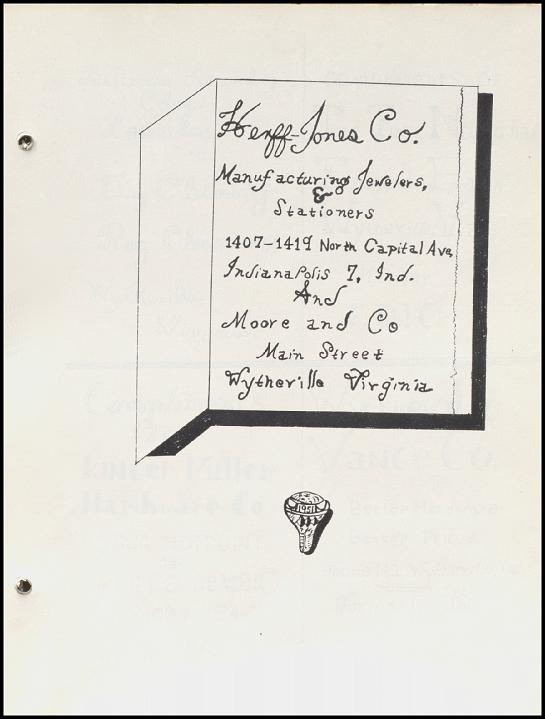 Herff-Jones Co.
Manufacturing Jewelers,
&
Stationers
1407-1419 North Capital Ave,
Indianapolis 7, Ind.
And
Moore and Co
Main Street
Wytheville Virginia
1951